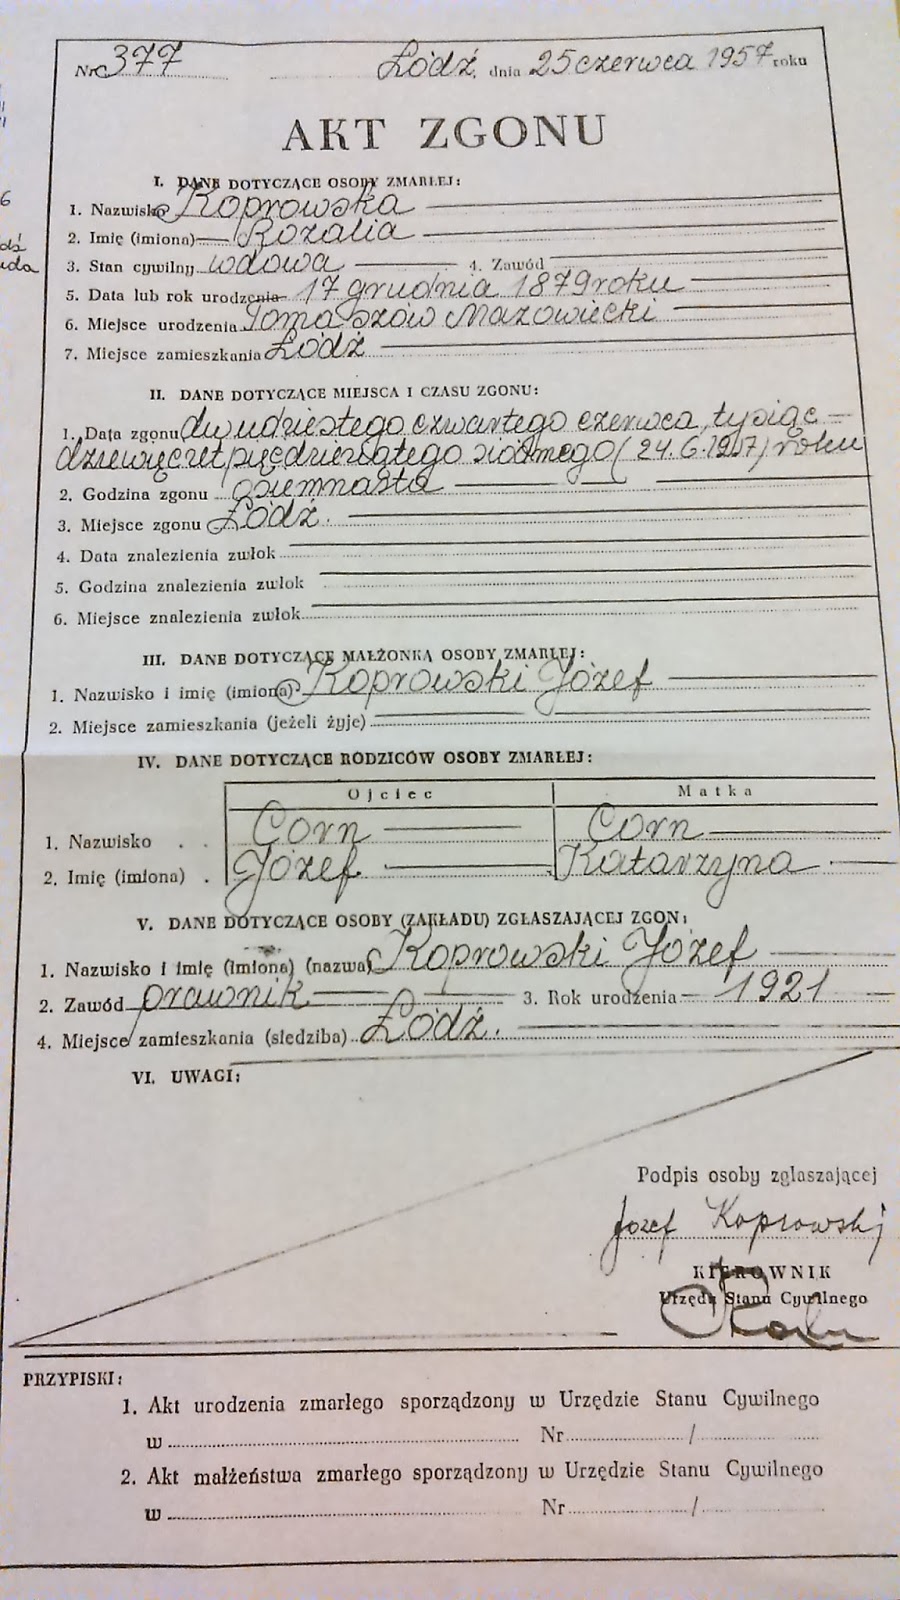 Nr 377 Łódź, dnia 25 czerwca 1957 roku
AKT ZGONU
I. DANE DOTYCZĄCE OSOBY ZMARŁEJ:
1. Nazwisko Koprowska
2. Imię (imiona) Rozalia
3. Stan cywilny wdowa 4. Zawód
5. Data lub rok urodzenia 17 grudnia 1879 roku
6. Miejsce urodzenia Tomaszów Mazowiecki
7. Miejsce zamieszkania Łódź
II. DANE DOTYCZĄCE MIEJSCA I CZASU ZGONU:
1. Data zgonu dwudziestego czwartego czerwca, tysiąc
dziewięćset pięćdziesiątego siódmego (24.6.1957) roku
2. Godzina zgonu osiemnasta
3. Miejsce zgonu Łódź.
4. Data znalezienia zwłok
5. Godzina znalezienia zwłok
6. Miejsce znalezienia zwłok
III. DANE DOTYCZĄCE MAŁŻONKA OSOBY ZMARŁEJ:
1. Nazwisko i imię (imiona) Koprowski Józef
2. Miejsce zamieszkania (jeżeli żyje)
IV. DANE DOTYCZĄCE RODZICÓW OSOBY ZMARŁEJ:
Ojciec Matka
1. Nazwisko Corn Corn
2. Imię (imiona) Józef Katarzyna
V. DANE DOTYCZĄCE OSOBY (ZAKŁADU) ZGŁASZAJĄCEJ ZGON:
1. Nazwisko i imię (imiona) (nazwa) Koprowski Józef
2. Zawód prawnik 3. Rok urodzenia 1921
4. Miejsce zamieszkania (siedziba) Łódź.
VI. UWAGI:
Podpis osoby zgłaszającej
Józef Koprowski
KIEROWNIK
Urzędu Stanu Cywilnego
PRZYPISKI:
1. Akt urodzenia zmarłego sporządzony w Urzędzie Stanu Cywilnego
w Nr /
2. Akt małżeństwa zmarłego sporządzony w Urzędzie Stanu Cywilnego
w Nr /